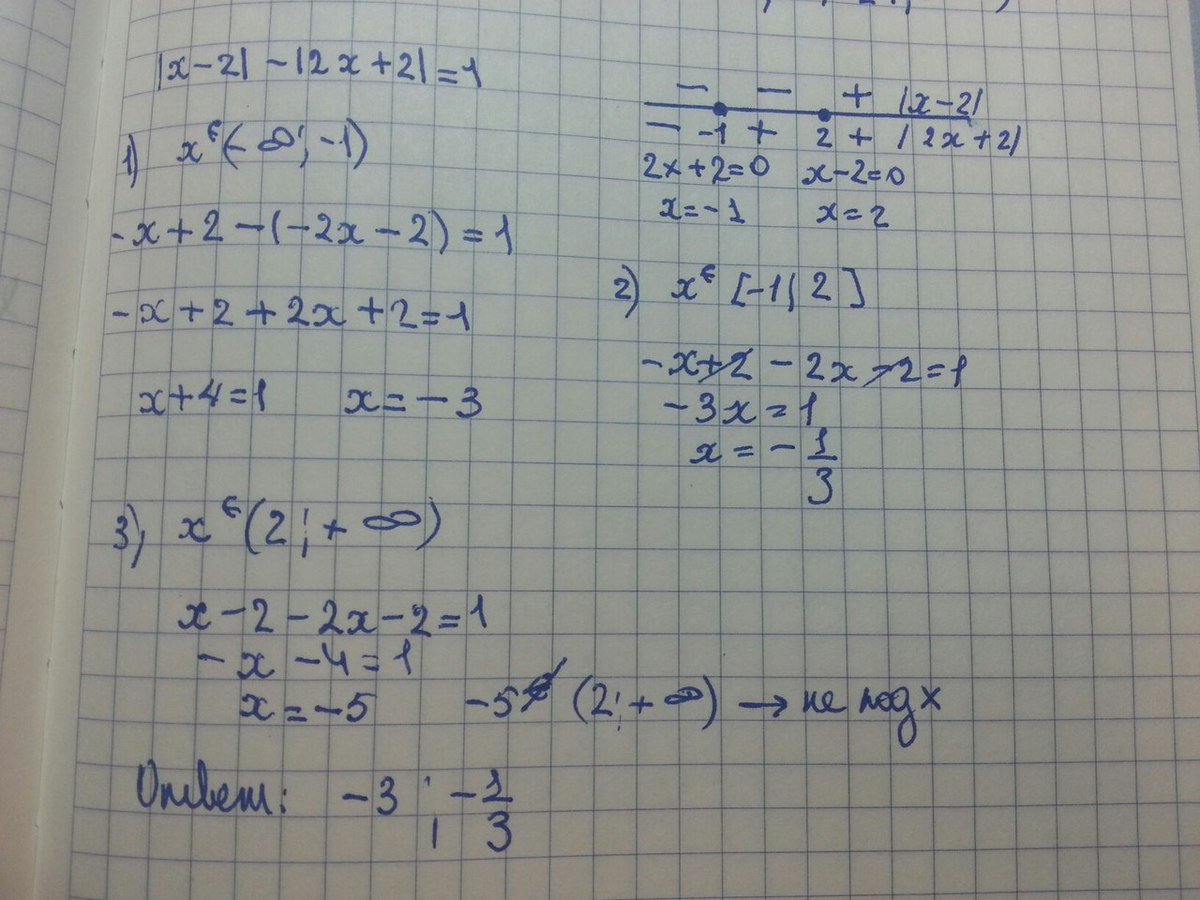 |x-2| - |2x+2| = 1
1) x ∈ (-∞; -1)
-x+2-(-2x-2) = 1
-x+2+2x+2=1
x+4=1 x=-3
- - + |x-2|
- -1 + 2 + |2x+2|
2x+2=0 x-2=0
x=-1 x=2
2) x ∈ [-1; 2]
-x+2-2x-2=1
-3x=1
x=-1/3
3) x ∈ (2; +∞)
x-2-2x-2=1
-x-4=1
x=-5 -5 ∉ (2; +∞) → не подх
Ответ: -3 ; -1/3